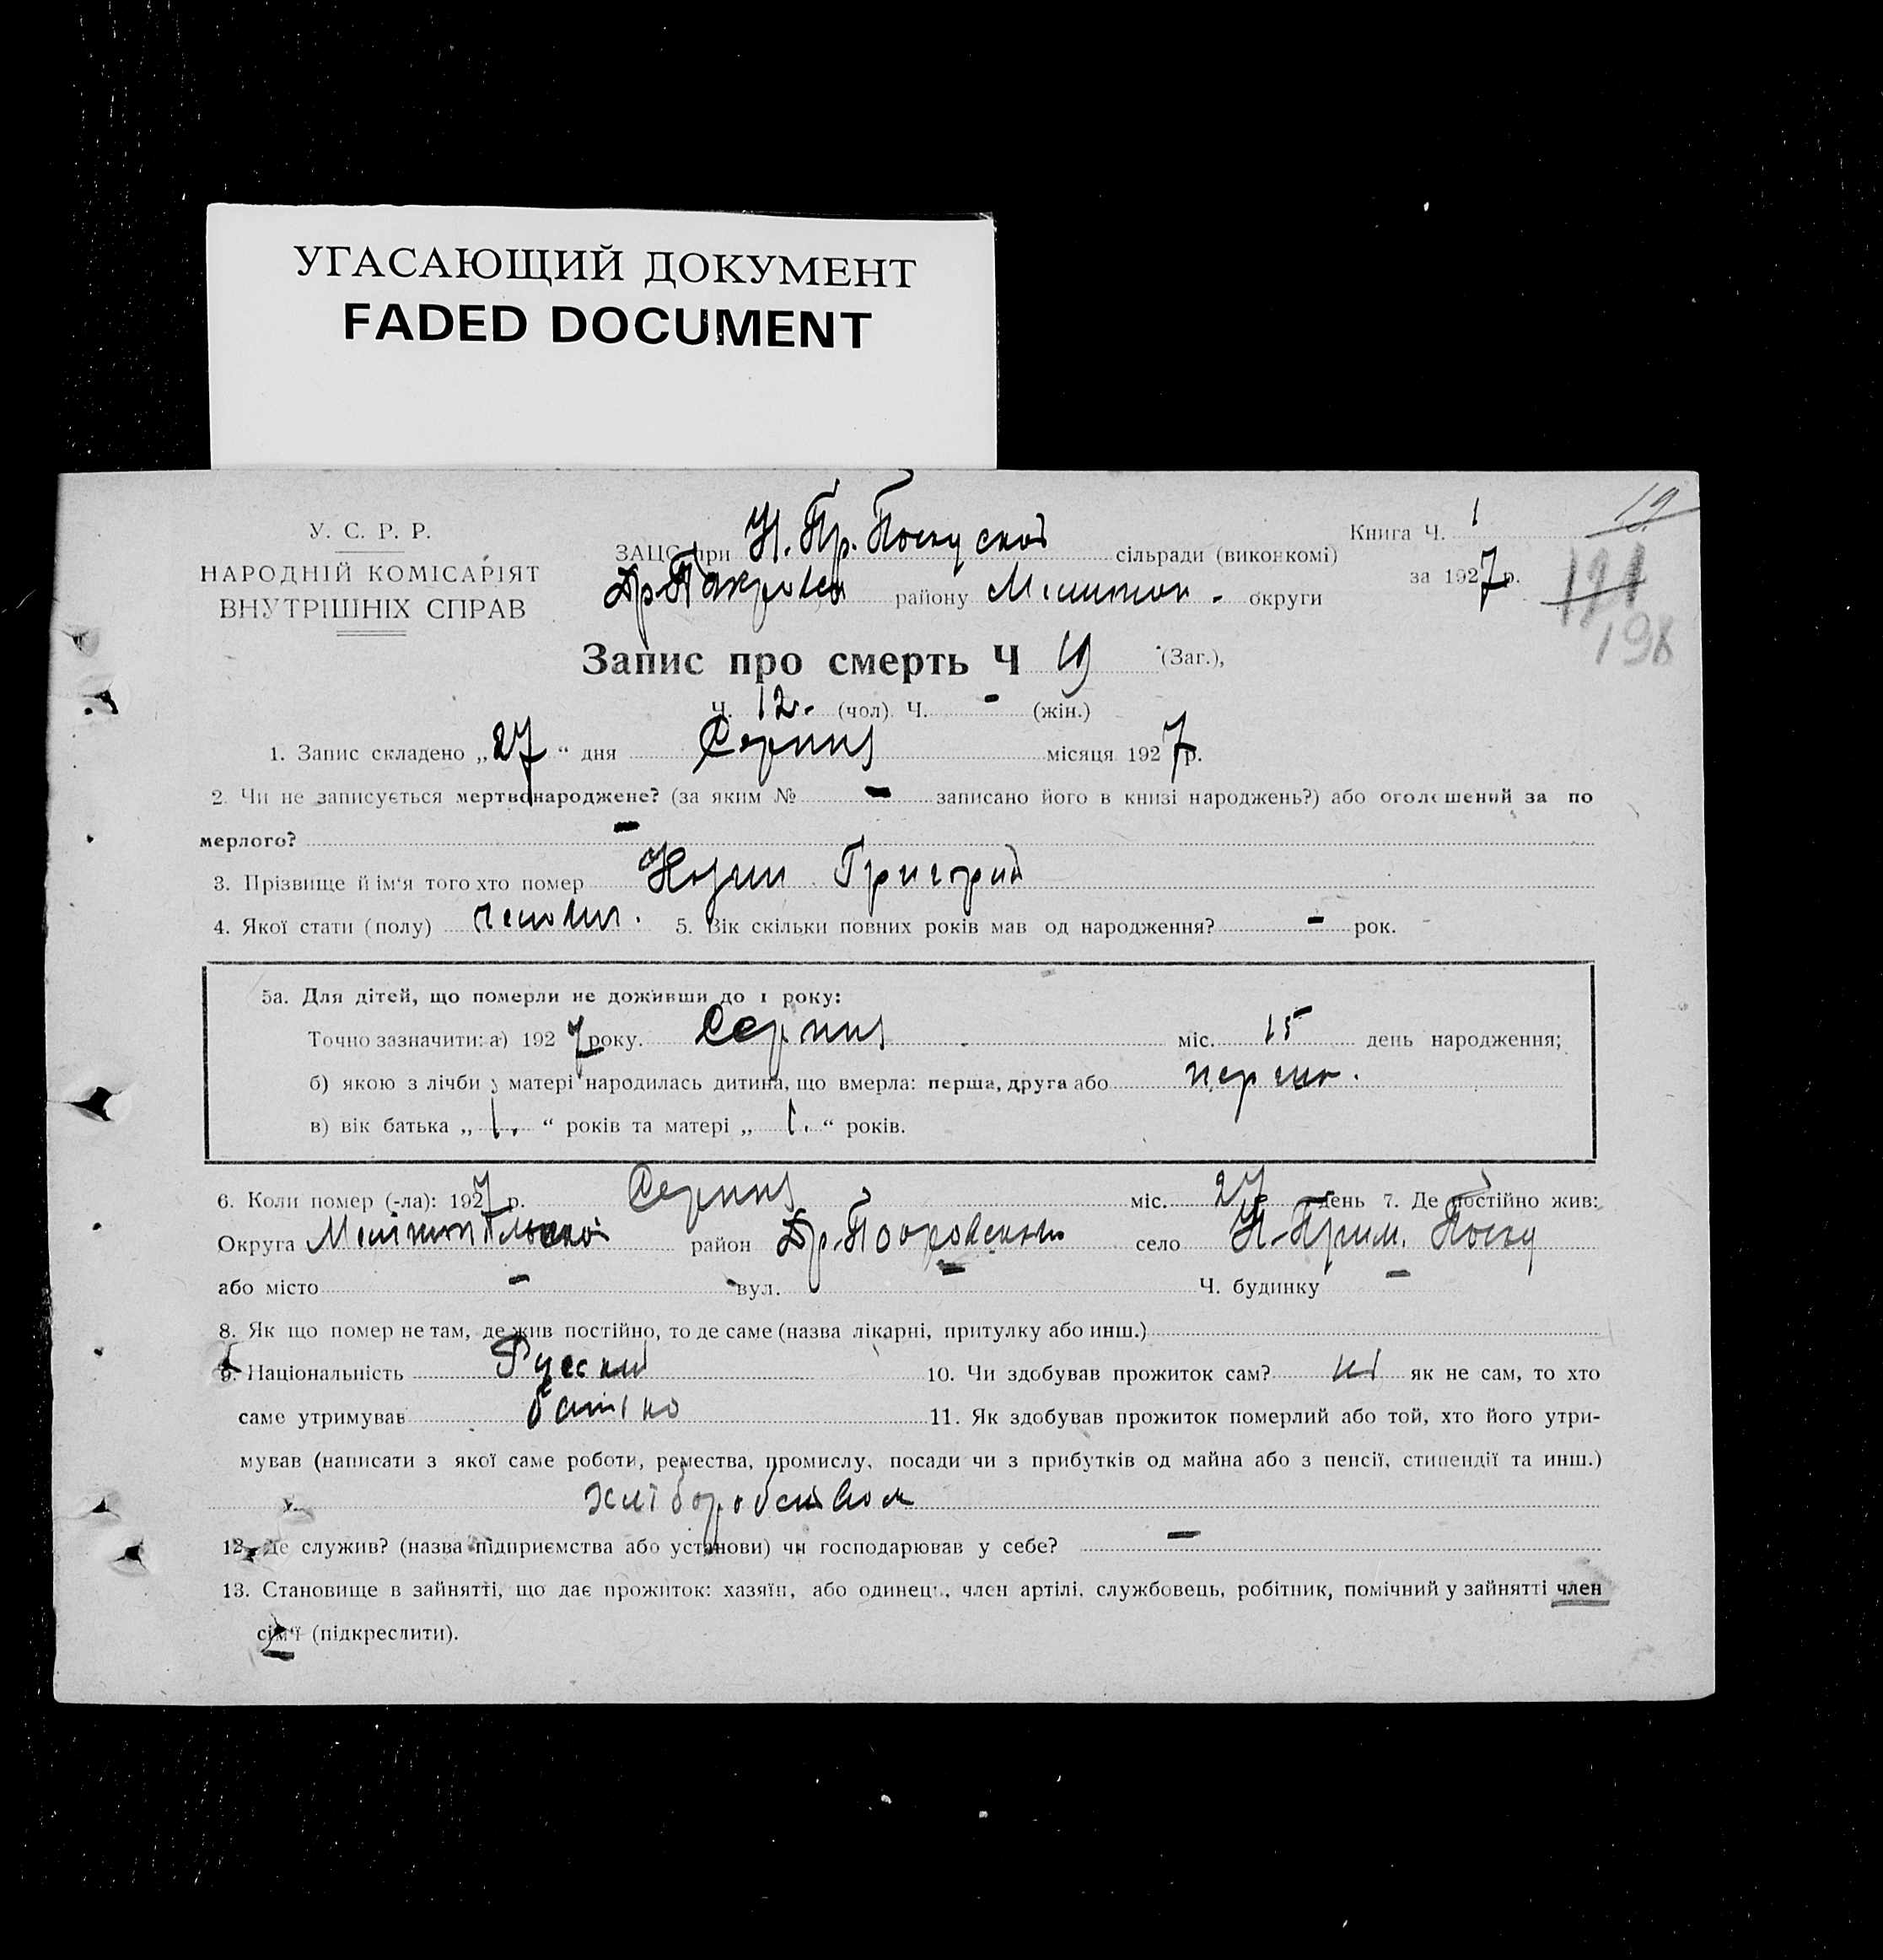 УГАСАЮЩИЙ ДОКУМЕНТ
FADED DOCUMENT
У. С. Р. Р.
НАРОДНІЙ КОМІСАРІЯТ
ВНУТРІШНІХ СПРАВ
ЗАЦС при Н. Пр. Поскуской сільради (виконкомі)
Др. Покровск району Мелитоп. округи
Книга Ч. 1
за 1927 р.
19
121
198
Запис про смерть Ч 19 (Заг.),
Ч. 12. (чол) Ч. - (жін.)
1. Запис складено „27“ дня Серпня місяця 1927 р.
2. Чи не записується мертвонароджене? (за яким № - записано його в книзі народжень?) або оголошений за по
мерлого? -
3. Прізвище й ім'я того хто помер Григорий
4. Якої стати (полу) человіч. 5. Вік скільки повних років мав од народження? - рок.
5а. Для дітей, що померли не доживши до 1 року:
Точно зазначити: а) 1927 року. Серпня міс. 15 день народження;
б) якою з лічби у матері народилась дитина, що вмерла: перша, друга або перша.
в) вік батька „ “ років та матері „ “ років.
6. Коли помер (-ла): 1927 р. Серпня міс. 27 день 7. Де постійно жив:
Округа Мелітопольской район Др. Покровський село Н-Прим. Поску
або місто - вул. - Ч. будинку -
8. Як що помер не там, де жив постійно, то де саме (назва лікарні, притулку або инш.)
9. Національність Руский 10. Чи здобував прожиток сам? ні як не сам, то хто
саме утримував батько 11. Як здобував прожиток померлий або той, хто його утри-
мував (написати з якої саме роботи, ремества, промислу, посади чи з прибутків од майна або з пенсії, стипендії та инш.)
хліборобством
12. Де служив? (назва підприємства або установи) чи господарював у себе? -
13. Становище в зайнятті, що дає прожиток: хазяїн, або одинець, член артілі, службовець, робітник, помічний у зайнятті член
сім'ї (підкреслити).